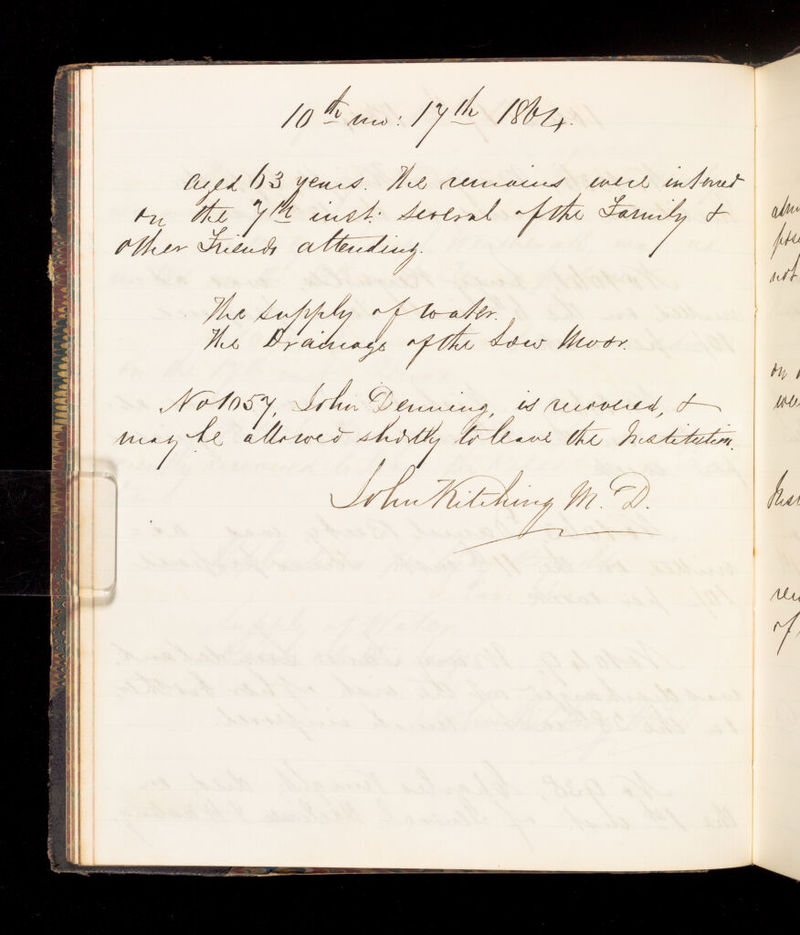 10th mo: 17th 1864.
aged 63 years. The remains were interred
on the 7th inst: several of the Family &
other Friends attending.
The supply of water.
The Drainage of the Low Moor.
No 1057, John Denning, is recovered, &
may be allowed shortly to leave the Institution.
John Kitching M. D.